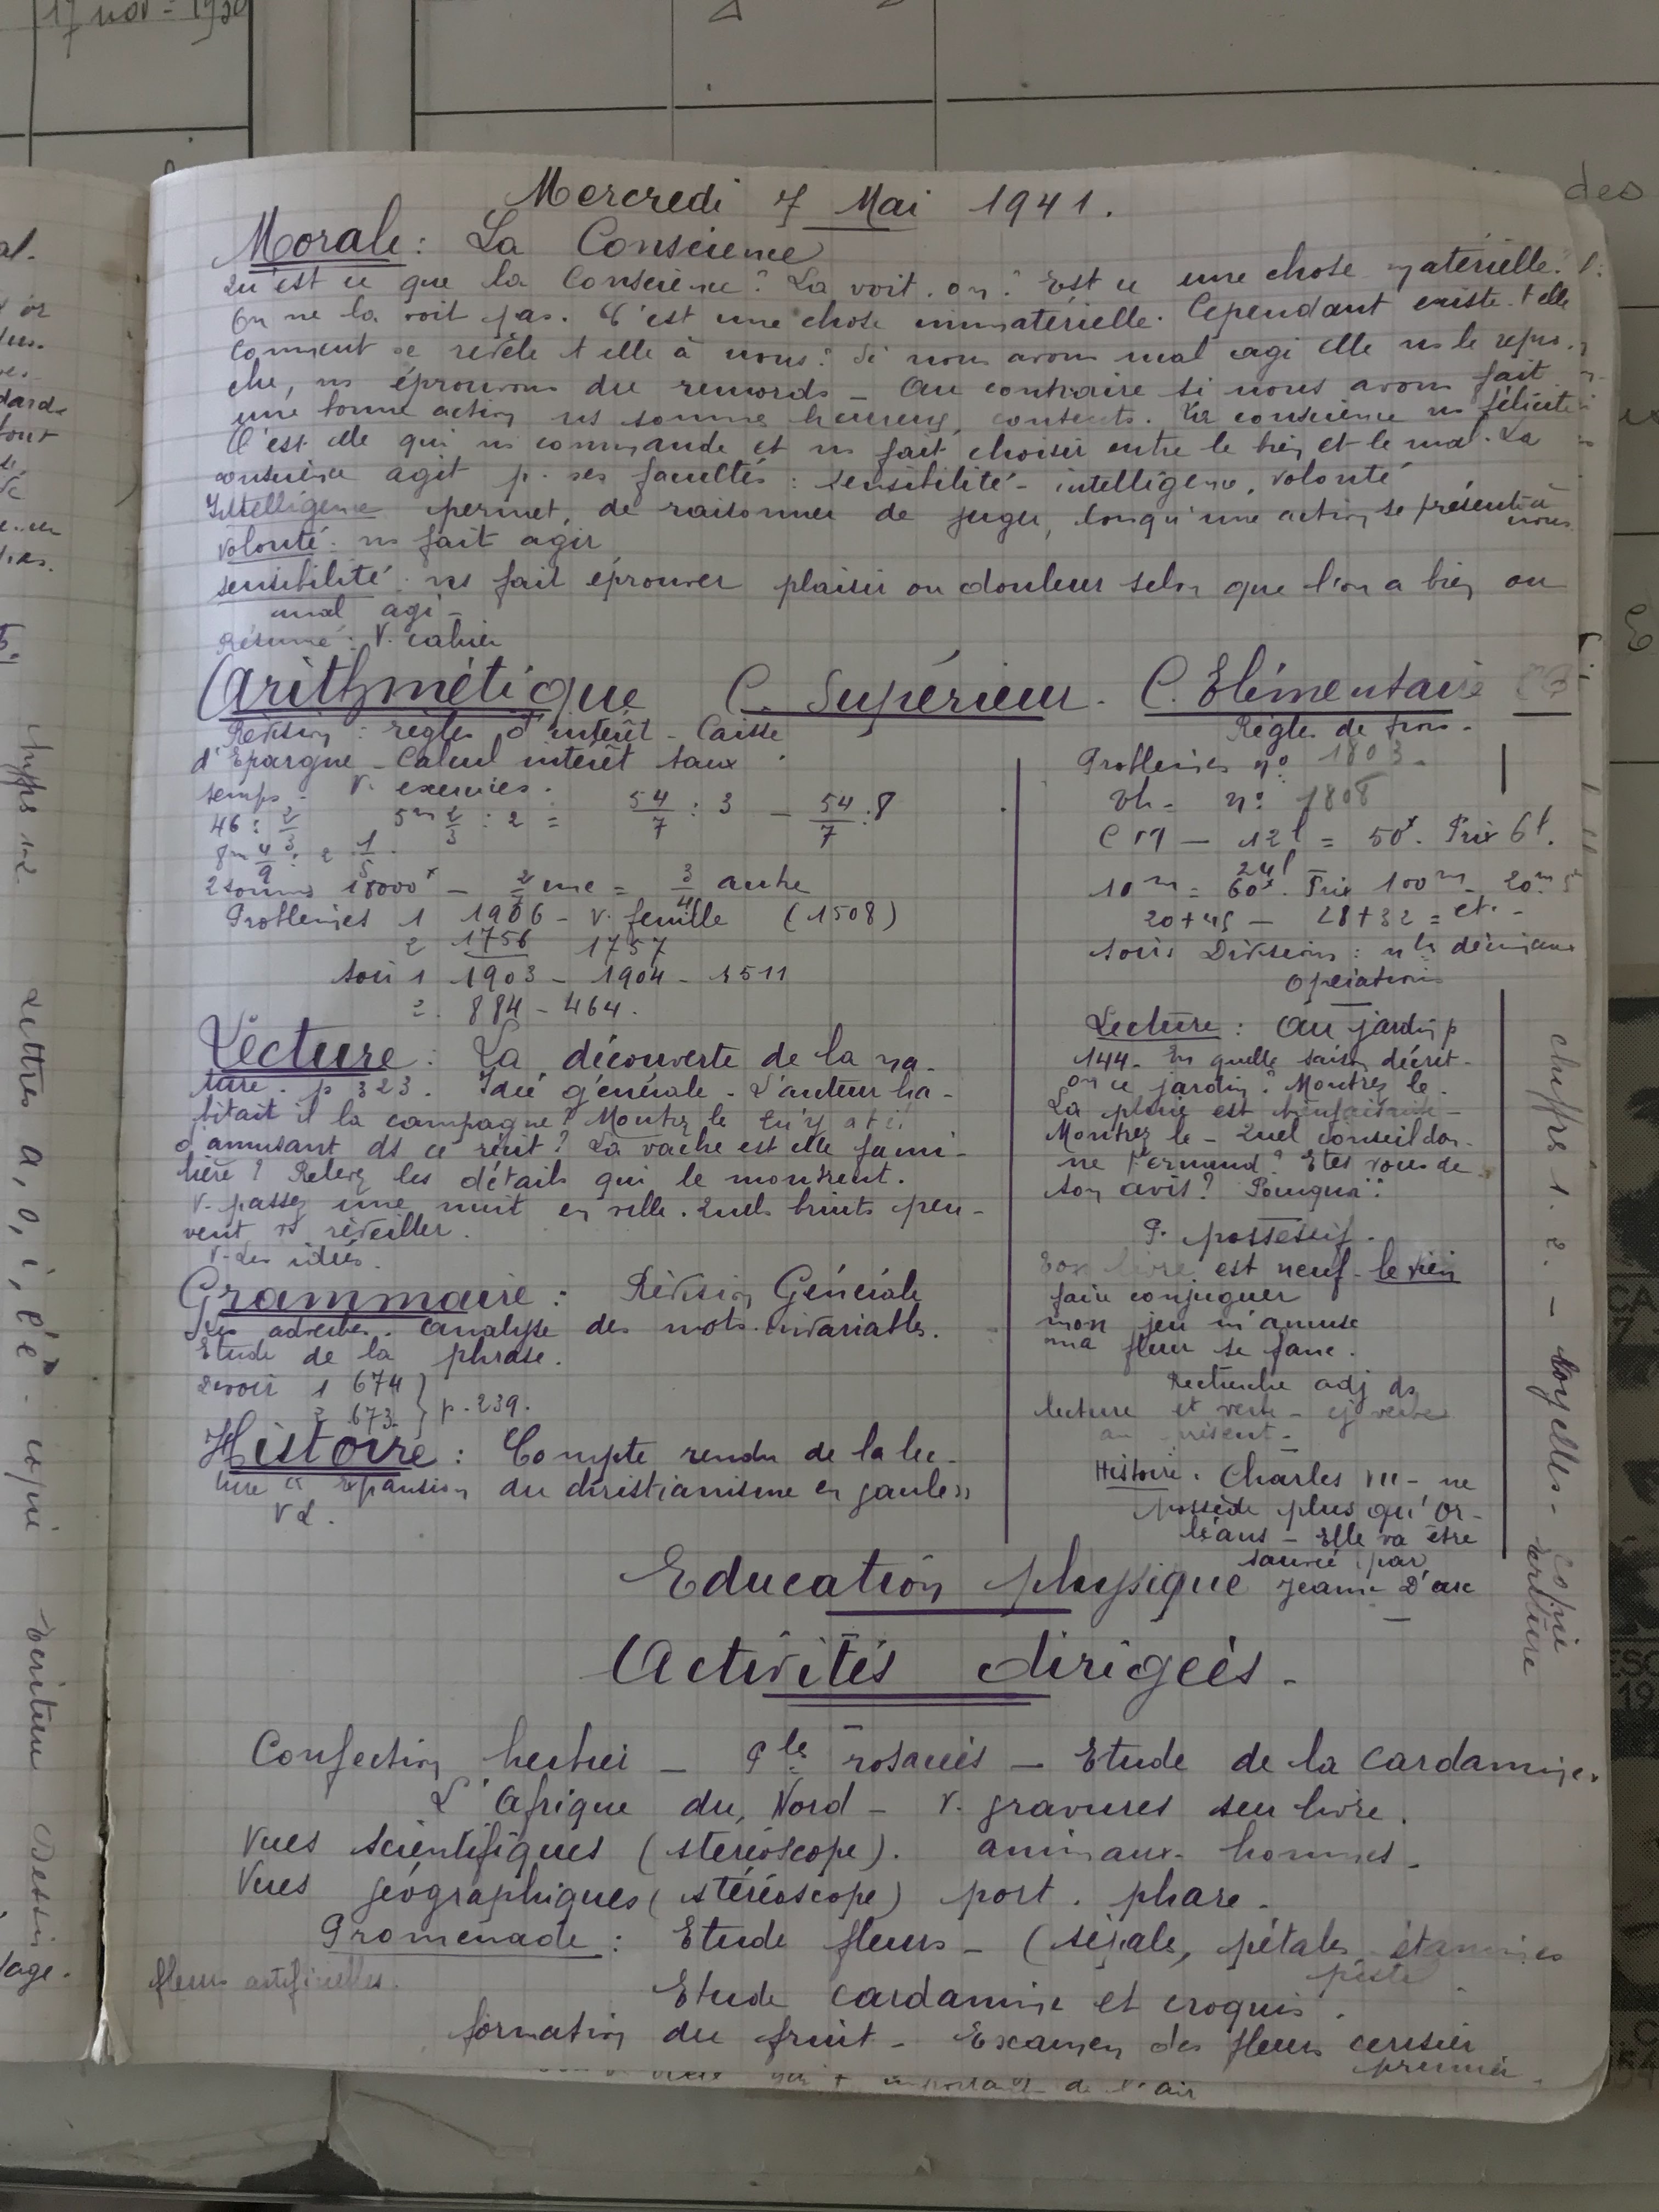 17 nov - 1930
Mercredi 7 Mai 1941.
Morale : La Conscience
Qu'est ce que la Conscience ? La voit-on ? Est ce une chose matérielle.
On ne la voit pas. C'est une chose immatérielle. Cependant existe-t elle
Comment se révèle t elle à nous ? Si nous avons mal agi elle ns le repro-
che, ns éprouvons du remords - Au contraire si nous avons fait
une bonne action ns somme heureux, contents. La conscience ns félicite
C'est elle qui ns commande et ns fait choisir entre le bien et le mal. La
conscience agit p. ses facultés : sensibilité - intelligence, volonté
Intelligence permet, de raisonner de juger, lorsqu'une action se présente à nous
Volonté : ns fait agir
sensibilité : ns fait éprouver plaisir ou douleur selon que l'on a bien ou
mal agi -
Résumé : V. cahier
Arithmétique C. Supérieur - C. Elémentaire
Révision : règles d'intérêt - Caisse
d'Epargne - Calcul intérêt taux
temps - V. exercices.
46 : 2/3 5m 2/3 : 2 = 54/7 : 3 - 54/7 : 8
8m 4/9 : 2 1/5.
2 sommes 18000f - 2/3 une = 3/4 autre
Problèmes 1 1906 - v. feuille (1508)
2 1756 1757
soir 1 1903 - 1904 - 1511
2. 884 - 464.
Règles de trois -
Problèmes no 1803 -
no 1808
CM - 12l = 50f. Prix 6l.
24l
10m = 60f. Prix 100m - 20m
20+45 - 28+32 = etc -
soir Divisions : nbs décimaux
Opérations
Lecture : La découverte de la na-
ture. p 323. Idée générale - L'auteur ha-
bitait il la campagne ? Montrez le Qu'y a t il
d'amusant ds ce récit ? La vache est elle fami-
lière ? Relevez les détails qui le montrent.
V. passez une nuit en ville. Quels bruits peu-
vent vs réveiller.
V. des idées.
Lecture : Au jardin p
144 - En quelle saison décrit-
on ce jardin ? Montrez le.
La pluie est bienfaisante -
Montrez le - Quel conseil don-
ne Fernand ? Etes vous de
son avis ? Pourquoi ?
P. possessif -
livre est neuf - le sien
faire conjuguer
mon jeu m'amuse
ma fleur se fane.
Recherche adj ds
lecture et verbe - cj verbes
au présent -
Grammaire : Révision Générale
Les adverbes. Analyse des mots invariables.
Etude de la phrase.
Devoir 1 674
2 673 } p. 239.
Histoire : Compte rendu de la lec-
ture "expansion du christianisme en gaule"
V L.
Histoire. Charles VII - ne
possède plus qu'Or-
léans - Elle va être
sauvée par
Jeanne D'arc
chiffres 1. 2. - voyelles - copie
écriture
Education physique
Activités dirigées -
Confection herbier - Flle rosacées - Etude de la cardamine.
L'Afrique du Nord - v. gravures sur livre.
Vues scientifiques (stéréoscope). animaux - hommes -
Vues géographiques (stéréoscope) port. phare -
Promenade : Etude fleurs - (sépales, pétales étamines
pistil
fleurs artificielles.
Etude cardamine et croquis.
formation du fruit - Examen des fleurs cerisier
prunier -
chiffres 1 2 lettres a, o, i, é è copie écriture Dessin